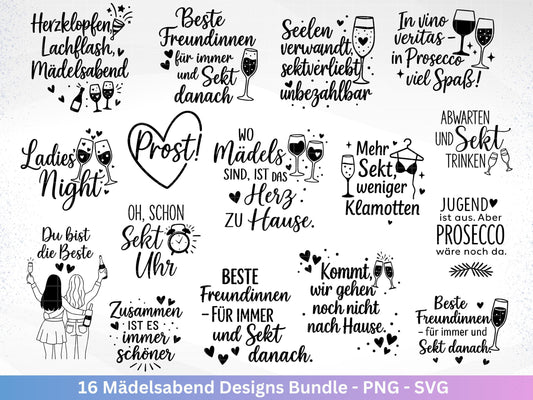 Herzklopfen,
Lachflash,
Mädelsabend
Beste
Freundinnen
für immer
und Sekt
danach
Seelen
verwandt,
sektverliebt,
unbezahlbar
In vino
veritas –
in Prosecco
viel Spaß!
Ladies
Night
Prost!
WO
Mädels
SIND, IST DAS
Herz
ZU HAUSE.
Mehr
Sekt,
weniger
Klamotten
ABWARTEN
UND Sekt
TRINKEN
Du bist
die Beste
OH, SCHON
Sekt
Uhr
JUGEND
ist aus. Aber
PROSECCO
wäre noch da.
Zusammen
IST ES
immer
schöner
BESTE
Freundinnen
- FÜR IMMER
und Sekt
danach.
Kommt,
wir gehen
noch nicht
nach Hause.
Beste
Freundinnen
- für immer und
Sekt danach.
16 Mädelsabend Designs Bundle - PNG - SVG